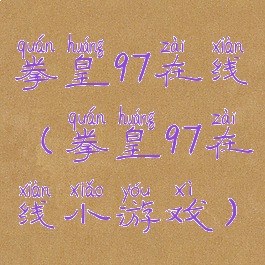 quán huáng zài xiàn
拳皇97在线
quán huáng zài
（拳皇97在
xiàn xiǎo yóu xì
线小游戏）